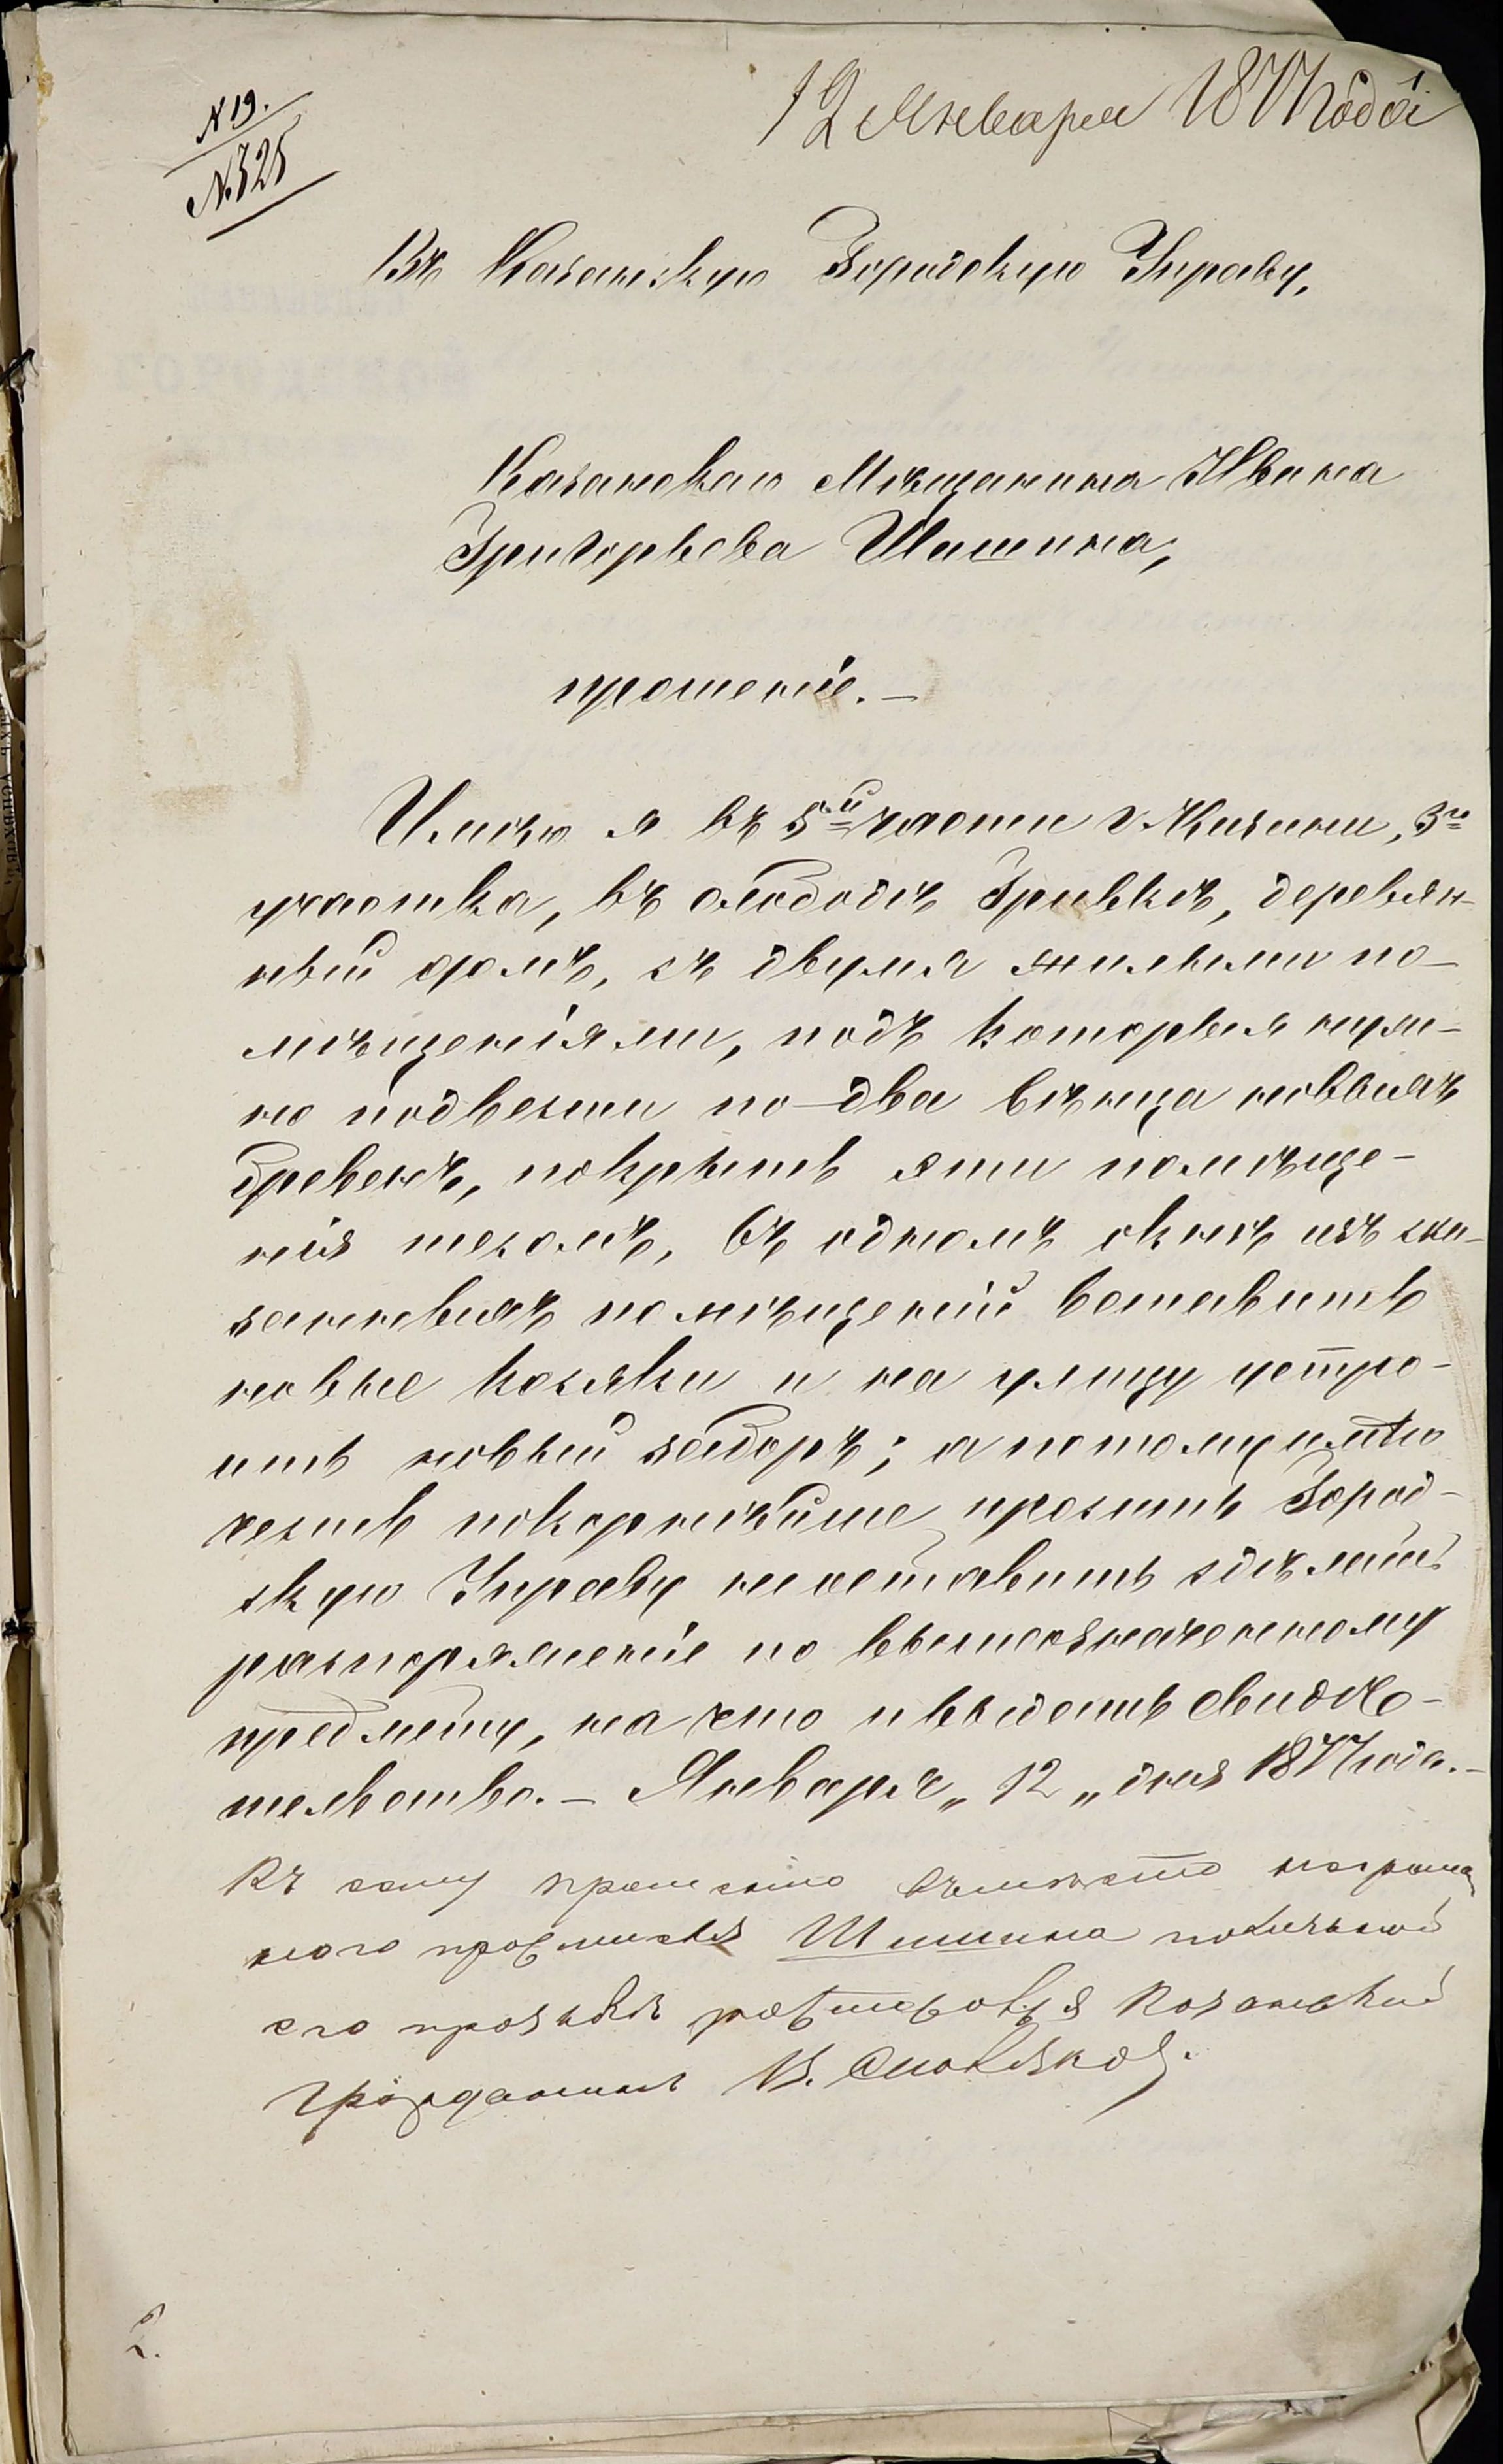 12 Января 1877 года
1
N 19.
N. 325
Въ Казанскую Городскую Управу,
Казанскаго Мѣщанина Ивана
Григорьева Шашина,
прошеніе. —
Имѣю я въ 5й части г. Казани, 3го
участка, въ слободѣ Гривкѣ, деревян-
ный домъ, съ двумя жилыми по-
мѣщеніями, подъ которыя нуж-
но подвести по два вѣнца новыхъ
бревенъ, покрыть эти помѣще-
нія тесомъ, въ одномъ окнѣ изъ ска-
занныхъ помѣщеній вставить
новые косяки и на улицу устро-
ить новый заборъ; а потому имѣю
честь покорнѣйше просить Город-
скую Управу не оставить сдѣлать
распоряженіе по вышеозначенному
предмету, на что и выдать свидѣ-
тельство. — Января „ 12 „ дня 1877 года. —
Къ сему прошенію вмѣсто неграмат
наго просителя Шашина по личной
его прозьбѣ росписовъ Казанскій
гражданинъ В.
2.